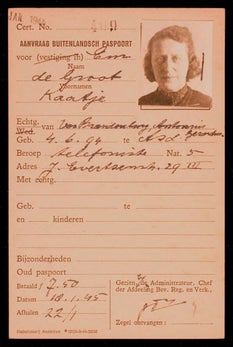 JAN 19
Cert. No.
AANVRAAG BUITENLANDSCH PASPOORT
voor (vestiging in) Em.
Naam
de Groot
Voornamen
Kaatje
Echtg. van Van Brandenburg, Antonius
Wed.
Geb. 4.6.94 te A'dam
Beroep telefoniste Nat. 5
Adres J. Evertsenstr. 29 III
Met echtg.
Geb. te
en kinderen
Bijzonderheden
Oud paspoort
Betaald f 7.50
Gezien, de Administrateur, Chef
der Afdeeling Bev. Reg. en Verk.,
Datum 18.1.45
Afhalen 22/1
Zegel ontvangen: